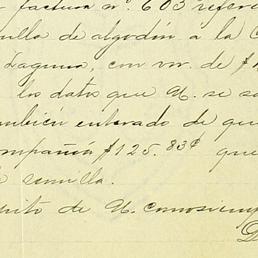 factura nº. 603 refere
illa de algodón á la C
Laguna, con vr. de $1
los datos que U. se s
ambien enterado de que
ompañía $125.83¢ que
semilla.
ito de U. como siemp